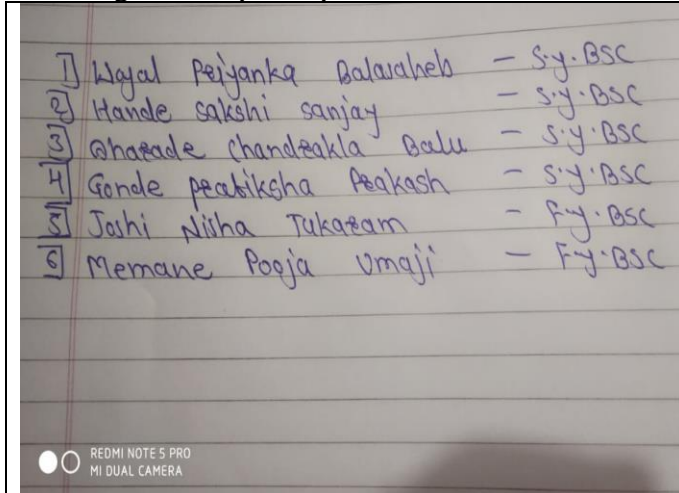 1] Wajal Priyanka Balasaheb - S.y.BSC
2] Hande sakshi sanjay - S.y.BSC
3] Gharade Chandrakla Balu - S.y.BSC
4] Gonde pratiksha Prakash - S.y.BSC
5] Joshi Nisha Tukaram - F.y.BSC
6] Memane Pooja Umaji - F.y.BSC
REDMI NOTE 5 PRO
MI DUAL CAMERA